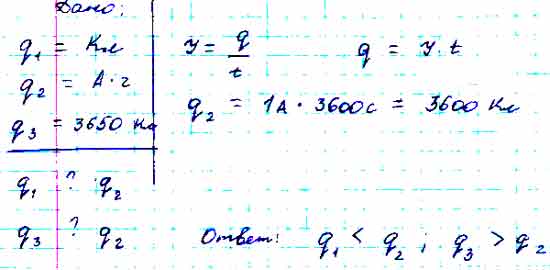 Дано:
q₁ = Кл
q₂ = А·г
q₃ = 3650 Кл
q₁ ? q₂
q₃ ? q₂
У = q/t q = У·t
q₂ = 1А · 3600с = 3600 Кл
Ответ: q₁ < q₂ ; q₃ > q₂